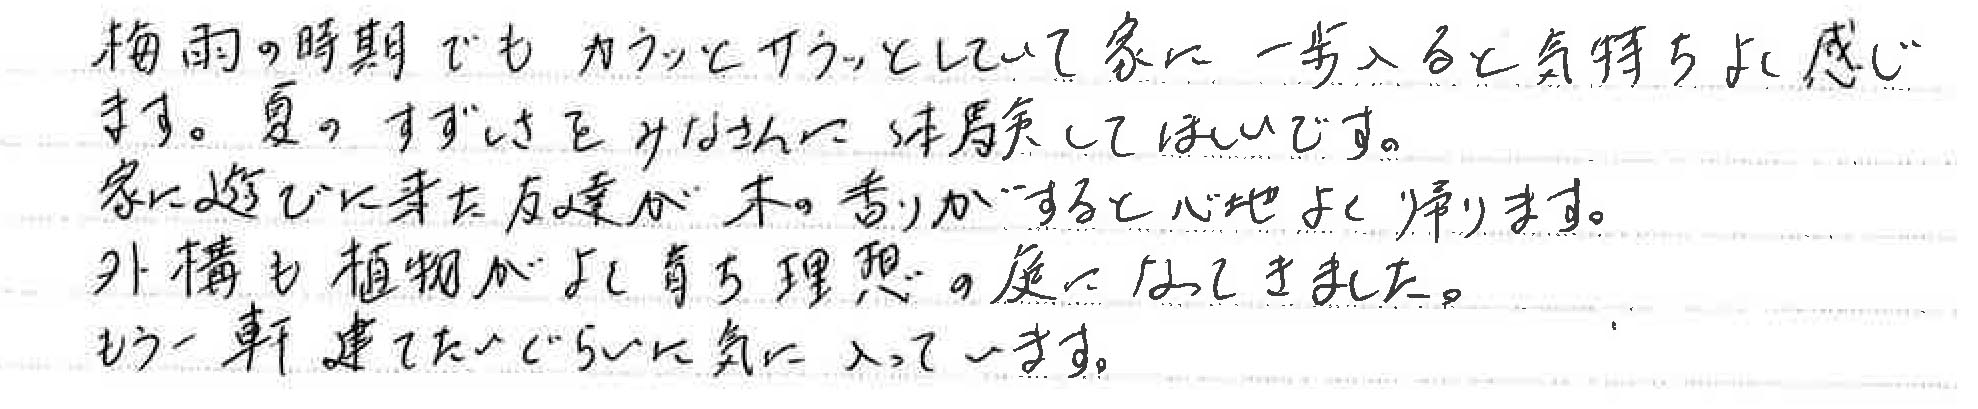 梅雨の時期でもカラッとサラッとしていて家に一歩入ると気持ちよく感じ
ます。夏のすずしさをみなさんに体験してほしいです。
家に遊びに来た友達が木の香りがすると心地よく帰ります。
外構も植物がよく育ち理想の庭になってきました。
もう一軒建てたいぐらいに気に入っています。